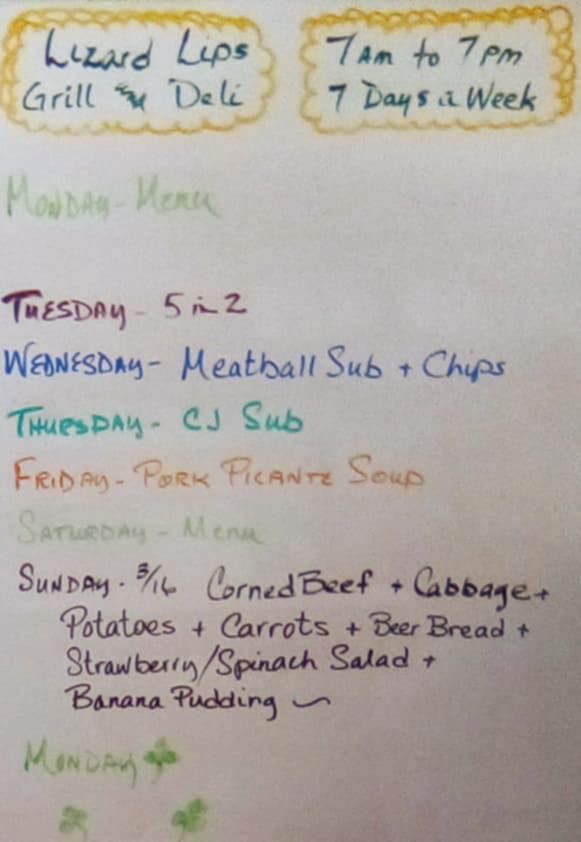 Lizard Lips
Grill & Deli
7 AM to 7 PM
7 Days a Week
Monday - Menu
Tuesday - 5 in 2
Wednesday - Meatball Sub + Chips
Thursday - CJ Sub
Friday - Pork Picante Soup
Saturday - Menu
Sunday - 3/16 Corned Beef + Cabbage +
Potatoes + Carrots + Beer Bread +
Strawberry/Spinach Salad +
Banana Pudding
Monday